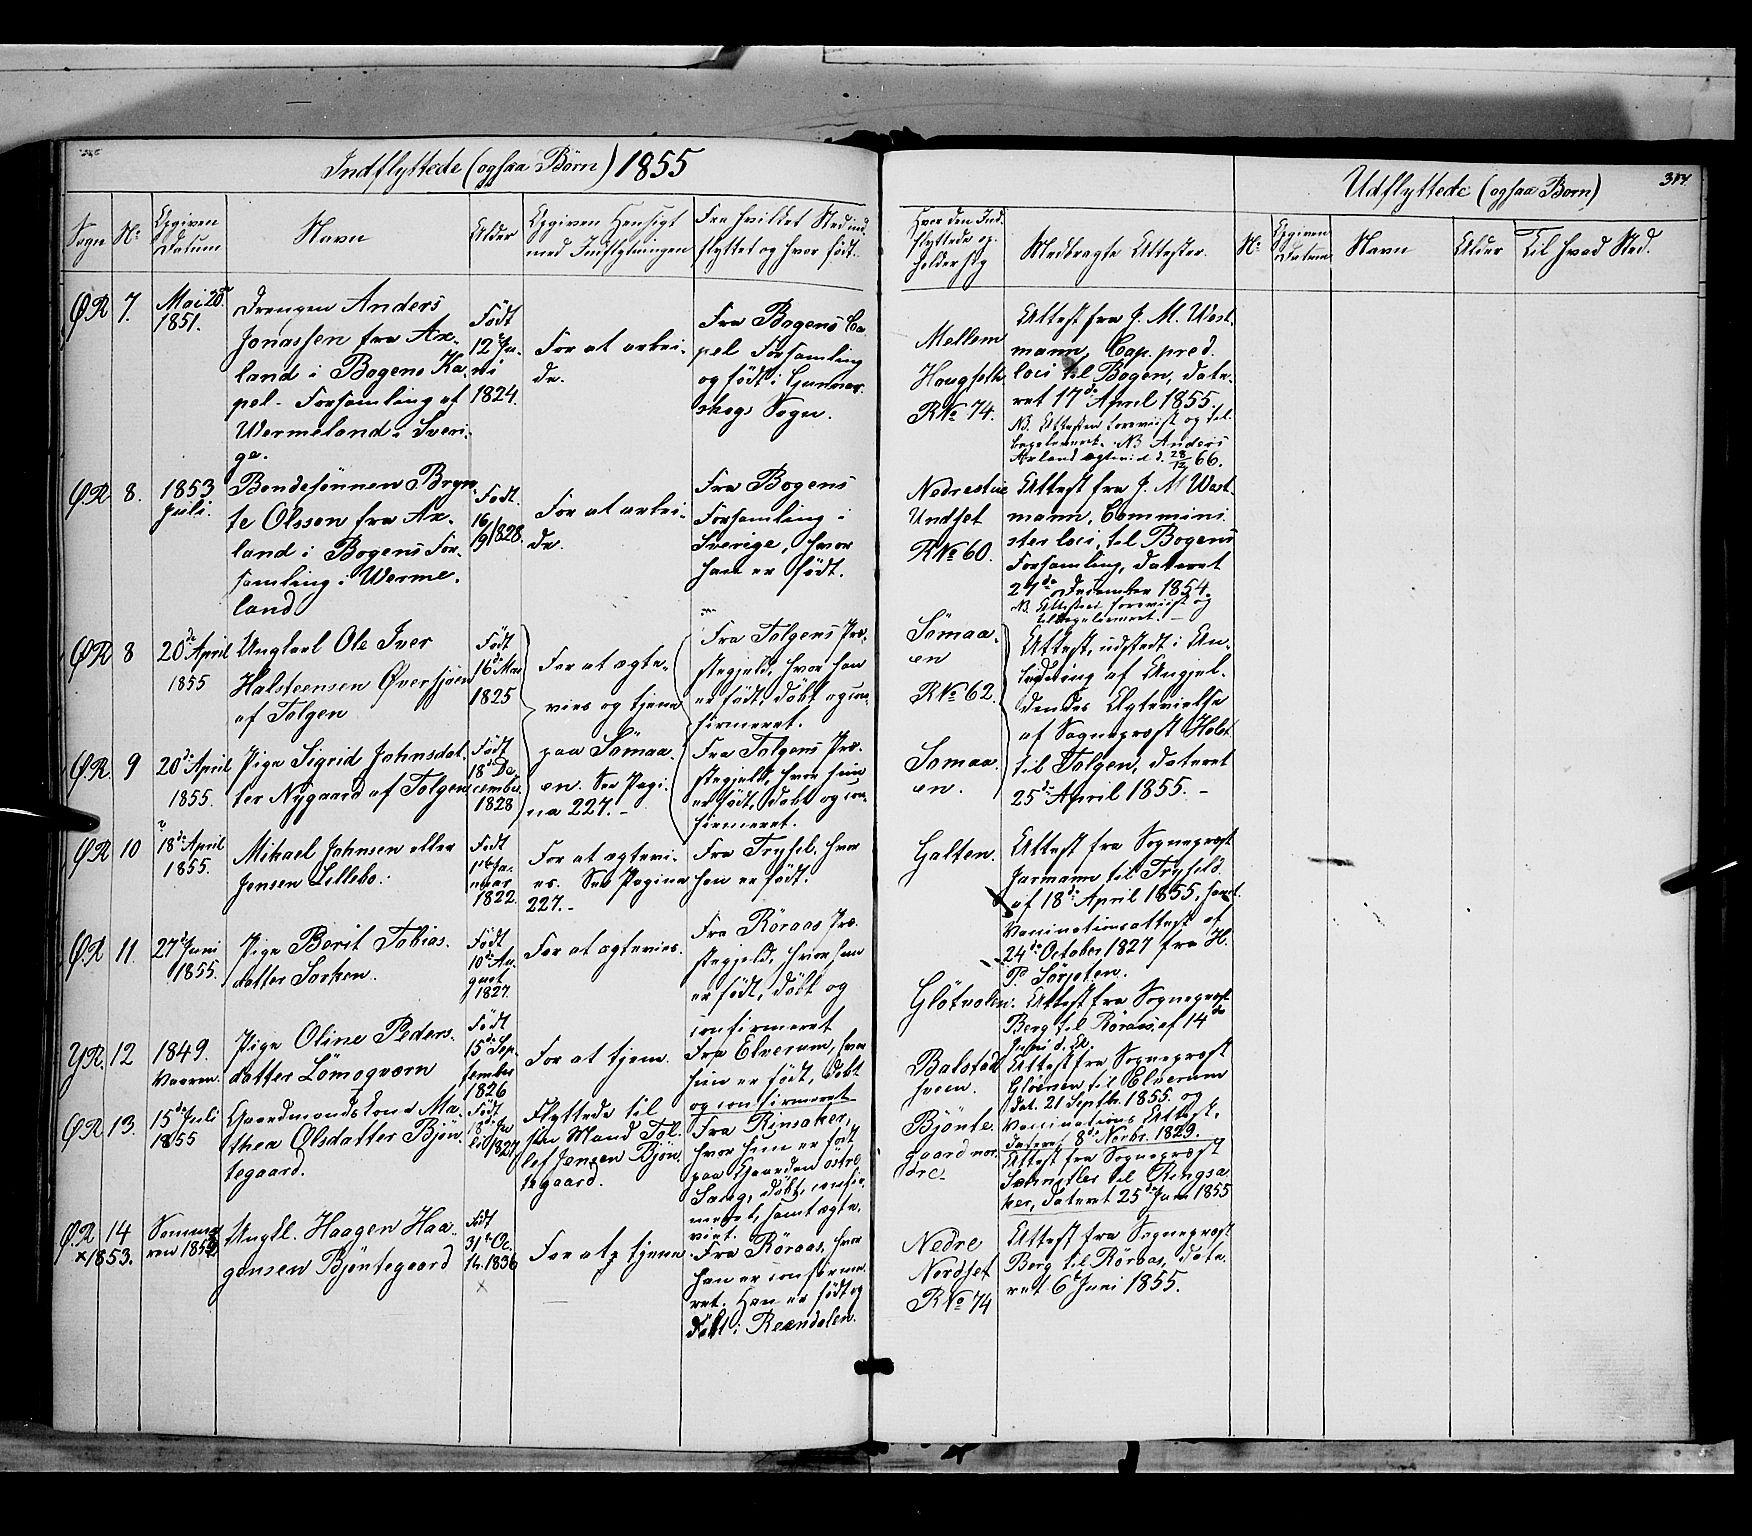 Indflyttede (ogsaa Børn) 1855
Udflyttede (ogsaa Børn)
Sogn
No
Opgiven
Datum
Navn
Alder
Opgiven Hensigt
med Indflytningen
Fra hvilket Sted ind-
flyttet og hvor født.
Hvor den Ind-
flyttede op-
holder sig
Medbragte Attester.
No
Opgiven
Datum
Navn
Alder
Til hvad Sted.
ØR 7.
Mai 20de
1851.
Drengen Anders
Jonassen fra Ax-
land i Bogens Ka-
pel-Forsamling af
Wermeland i Sveri-
ge.
Født
12te Ju-
ni
1824.
For at arbei-
de.
Fra Bogens Ca-
pel Forsamling
og født i Gunnar-
skogs Sogn.
Mellem
Hougseth
R No 74.
Attest fra J. M. West-
mann, Cap. pred.
loci til Bogen, date-
ret 17de April 1855.
NB. Attesten foreviist og til-
bageleveret. NB Anders
Axland ægteviet d. 28/12 66.
ØR 8.
1853
Juli.
Bondesønnen Bryn-
te Olsson fra Ax-
land i Bogens For-
samling i Werme-
land
Født
16/9 1828.
For at arbei-
de.
Fra Bogens
Forsamling i
Sverige, hvor
han er født.
Nedrestue
Undset
R No 60.
Attest fra J. M West-
mann, Commini-
ster loci, til Bogens
Forsamling, dateret
27de December 1854.
NB. Attesten foreviist og
tilbageleveret. –
ØR 8
20de April
1855
Ungkarl Ole Iver
Halsteensen Øversjøen
af Tolgen
Født
16de Mai
1825
For at ægte-
vies og tjene
paa Sömaa-
en. See Pagi-
na 227. –
Fra Tolgens Præ-
stegjeld, hvor han
er født, døbt og con-
firmeret.
Sömaa-
en
R No 62.
Attest, udstedt i An-
ledning af Angjel-
dendes Ægtevielse
af Sognepræst Holst
til Tolgen, dateret
25de April 1855. –
ØR 9
20de April
1855.
Pige Sigrid Johnsdat-
ter Nygaard af Tolgen
Født
18de De-
cember
1828
Fra Tolgens Præ-
stegjeld, hvor hun
er født, døbt og con-
firmeret.
Somaa-
en.
ØR 10
18de April
1855.
Mikael Johnsen eller
Jensen Lillebo.
Født
Ja-
nuar
1822
For at ægtevi-
es. See Pagina
227. –
Fra Trysil, hvor
han er født.
Galten.
Attest fra Sognepræst
Jarmann til Trysild
af 18de April 1855, samt
Vaccinationsattest af
24de October 1827 fra H.
P. Sörjeten.
ØR 11.
27de Juni
1855.
Pige Berit Tobias-
datter Sorken.
Født
10de Au-
gust
1827.
For at ægtevies.
Fra Röraas Præ-
stegjeld, hvor hun
er født, døbt og
confirmeret
Glötvolin.
Attest fra Sognepræst
Berg til Röraas af 14de
Juni d. A.
YR. 12
1849.
Vaaren.
Pige Oline Peders-
datter Lömoqværn
Født
15de Sep-
tember
1826
For at tjene.
Fra Elverum, hvor
hun er født, døbt
og confirmeret
Balstad
sveen.
Attest fra Sognepræst
Glöersen til Elverum
dat. 21 Septbr. 1855 og
Vaccinations Attest,
dateret 8de Novbr. 1829.
ØR 13.
15de Juli
1855
Gaardmandskone Ma-
thea Olsdatter Bjön-
tegaard.
Født
18de Ju-
li 1827
Flyttede til
sin Mand Tol-
lef Jensen Bjön-
tegaard.
Fra Rinsaker,
hvor hun er født
paa Gaarden östre
Saug, døbt, confir-
meret, samt ægte-
viet.
Bjönte-
gaard nor-
dre.
Attest fra Sognepræst
til Ringsa-
ker, dateret 25de Juni 1855
ØR 14
x 1853.
Somme-
ren
Ungk. Haagen Haa-
gensen Bjöntegaard
Født
31te Oc-
tb. 1836
x
For at tjene
Fra Röraas, hvor
han er confirme-
ret. Han er født og
døbt i Reendalen.
Nedre
Nordset
R No 74
Attest fra Sognepræst
Berg til Röraas, date-
ret 6te Juni 1855.